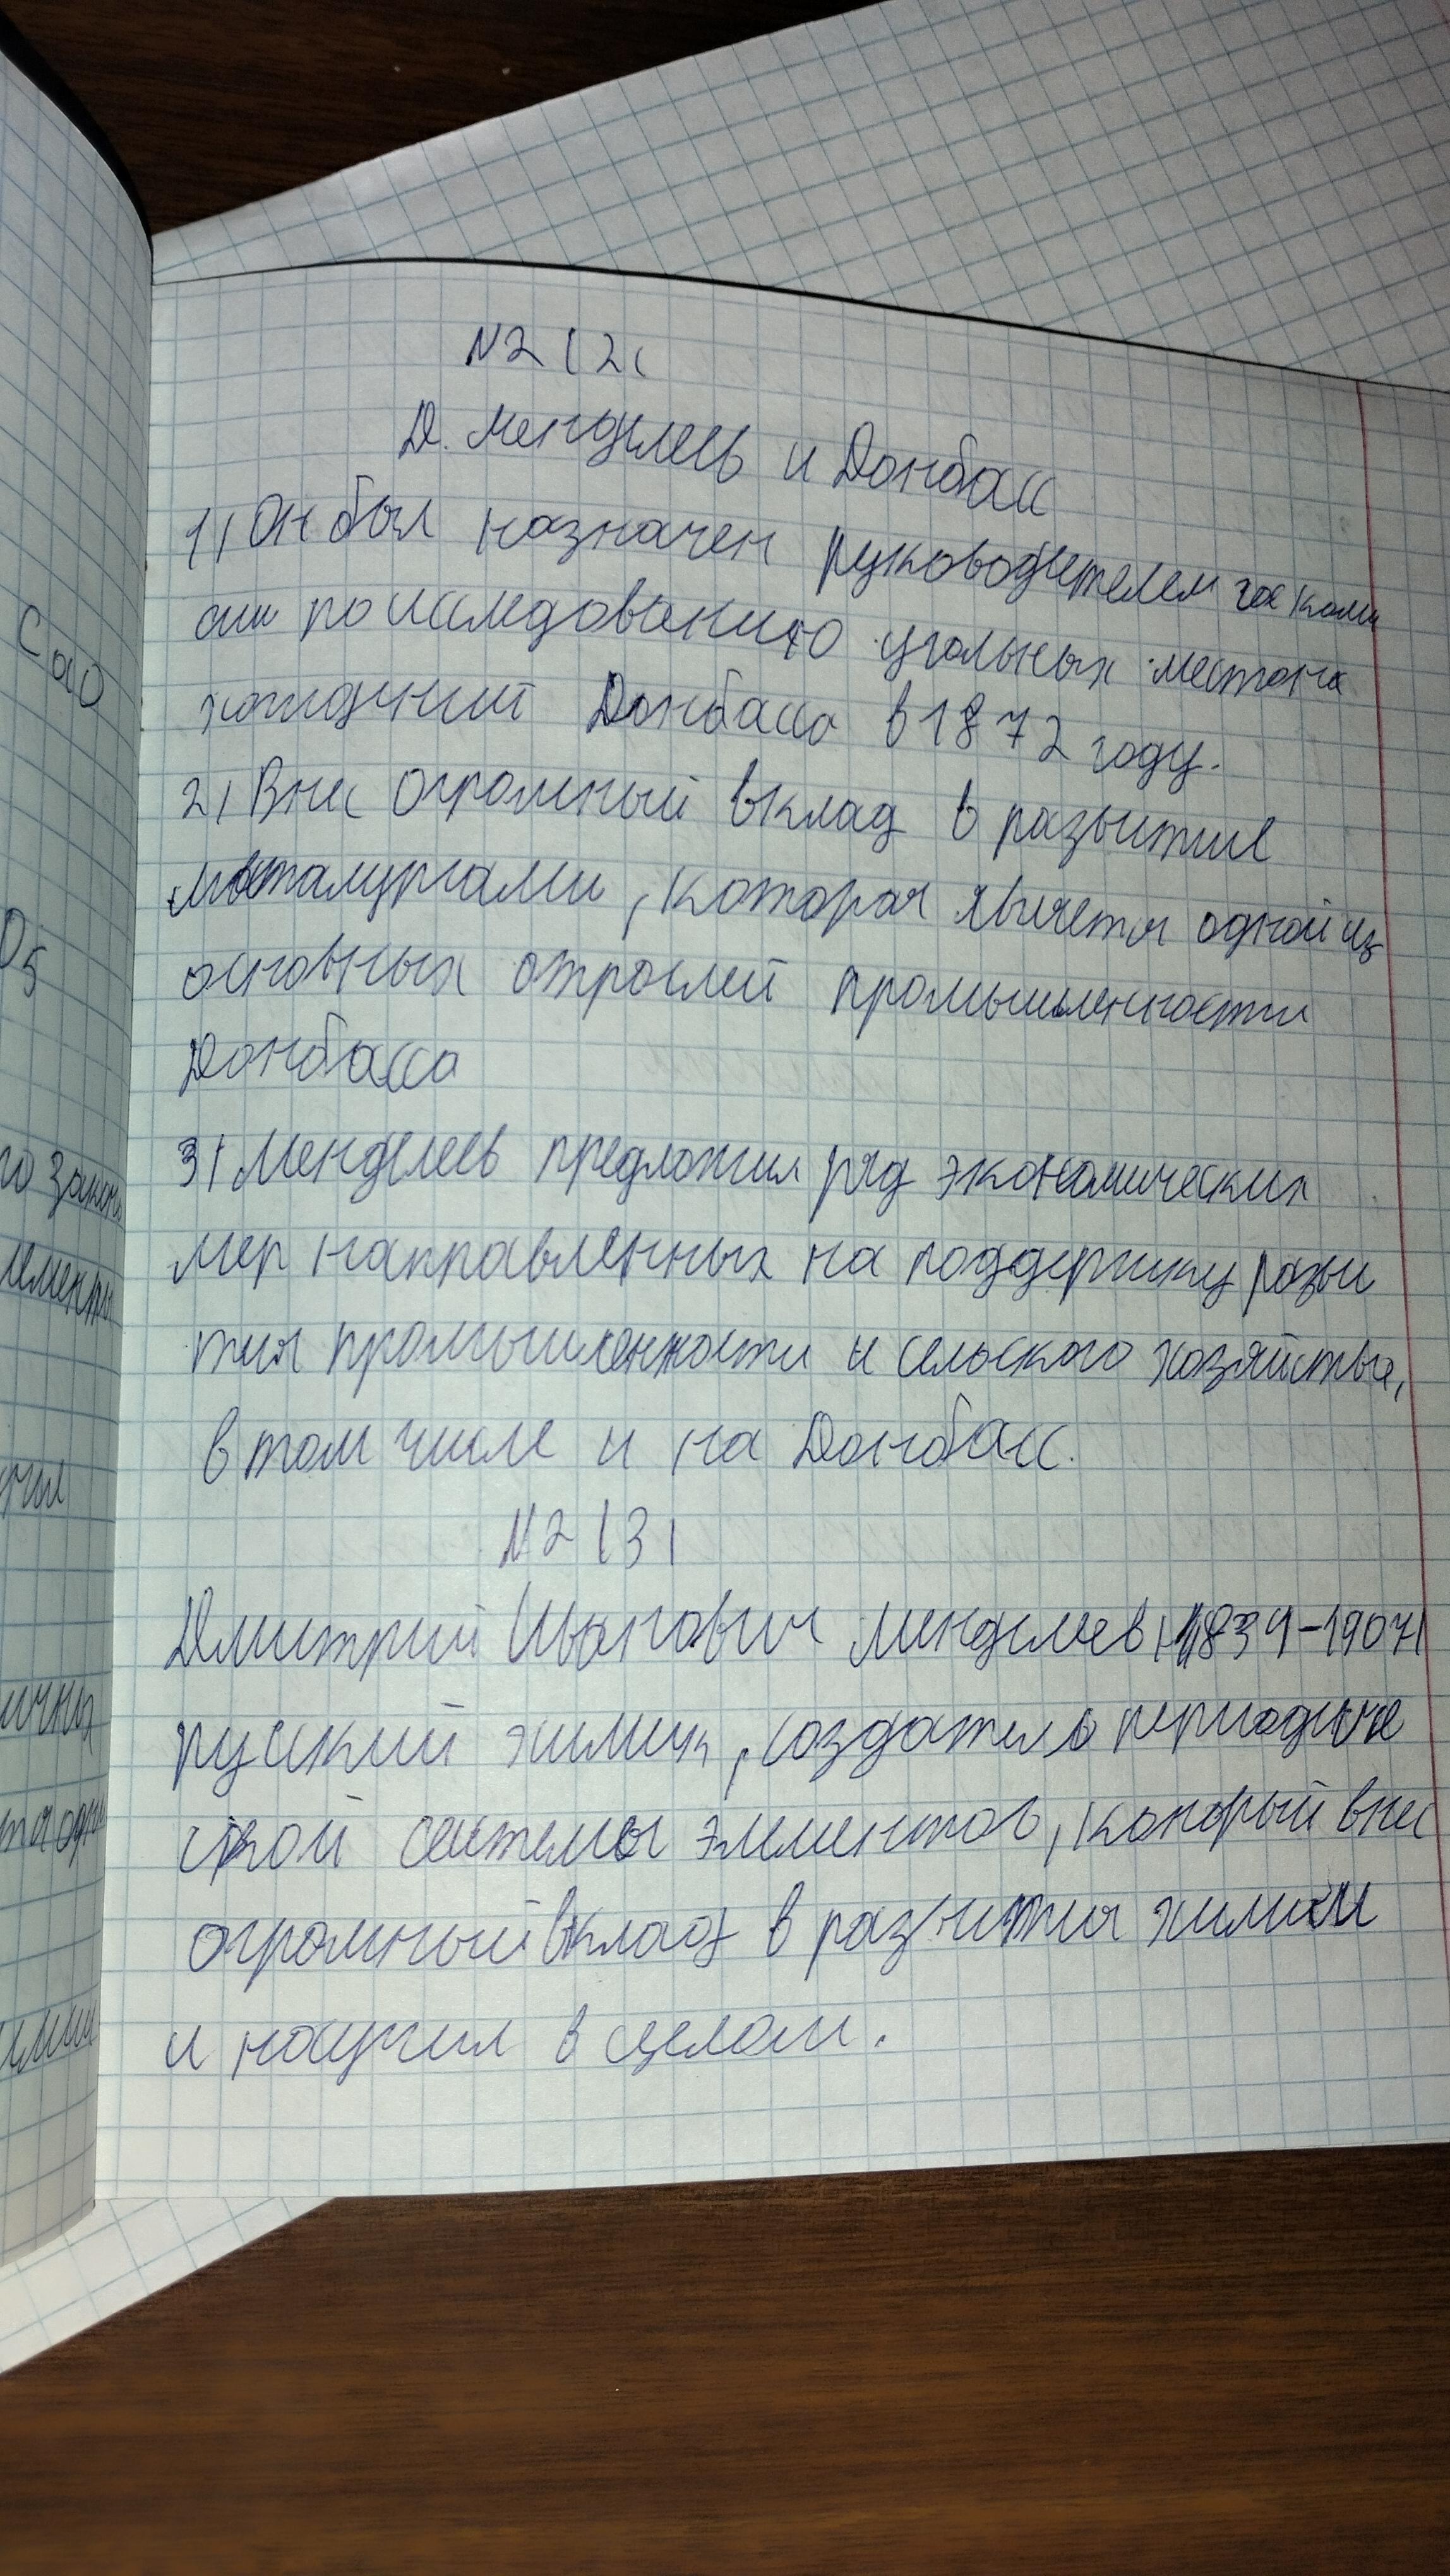 N2 (2(
Д. Менделеев и Донбасс
1) Он был назначен руководителем гос коми
сии по исследованию угольных местона
хождений Донбасса в 1872 году.
2) Внес огромный вклад в развитие
металургами, которая является одной из
основных отраслей промышленности
Донбасса
3) Менделеев предложил ряд экономических
мер направленных на поддержку разви
тия промышленности и сельского хозяйства,
в том числе и на Донбасс.
N2 (3)
Дмитрий Иванович Менделеев (1834-1907)
русский химик, создатель периодиче
ской системы элементов, который внес
огромный вклад в развития химии
и научил в целом.
CaO
O5
го закон
лемент